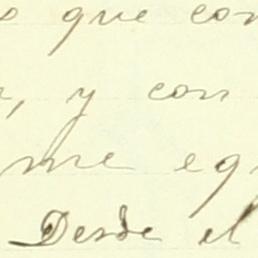 que con
, y con
me eq
Desde el